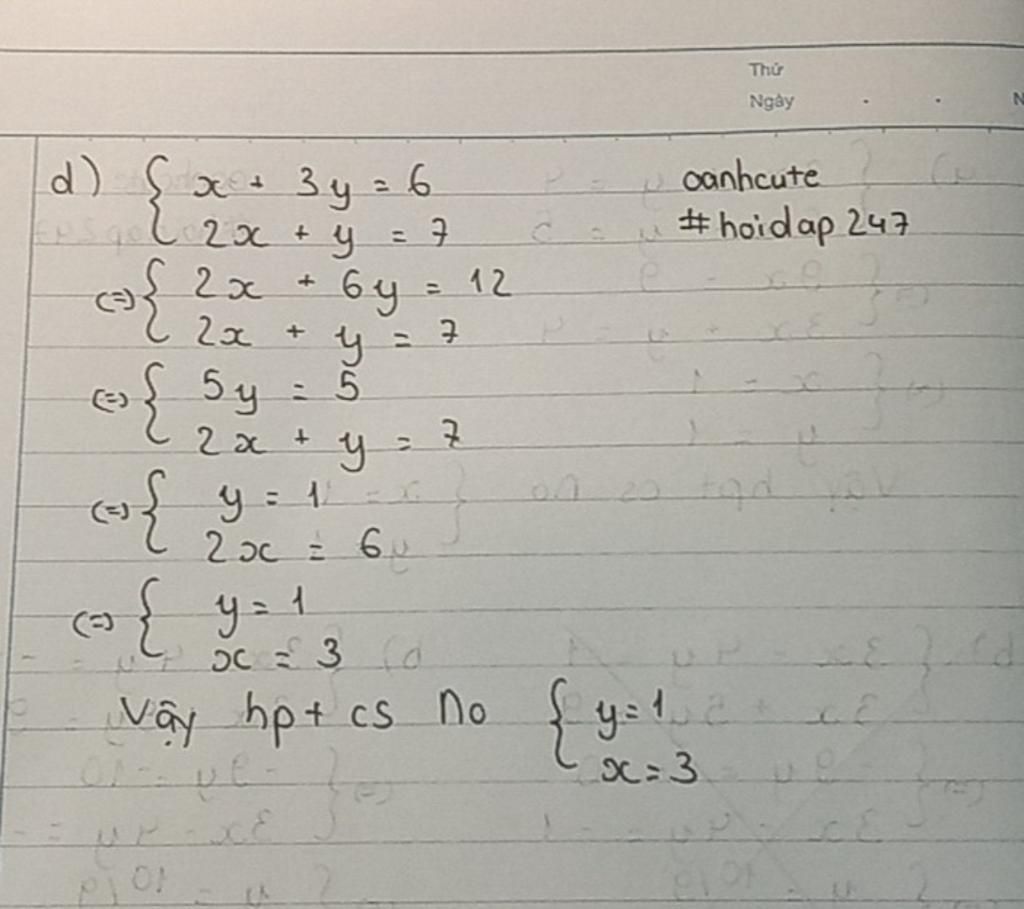 Thứ
Ngày . . N
d) { x + 3y = 6 oanhcute
2x + y = 7 #hoidap247
(=) { 2x + 6y = 12
2x + y = 7
(=) { 5y = 5
2x + y = 7
(=) { y = 1
2x = 6
(=) { y = 1
x = 3
Vậy hpt cs no { y = 1
x = 3